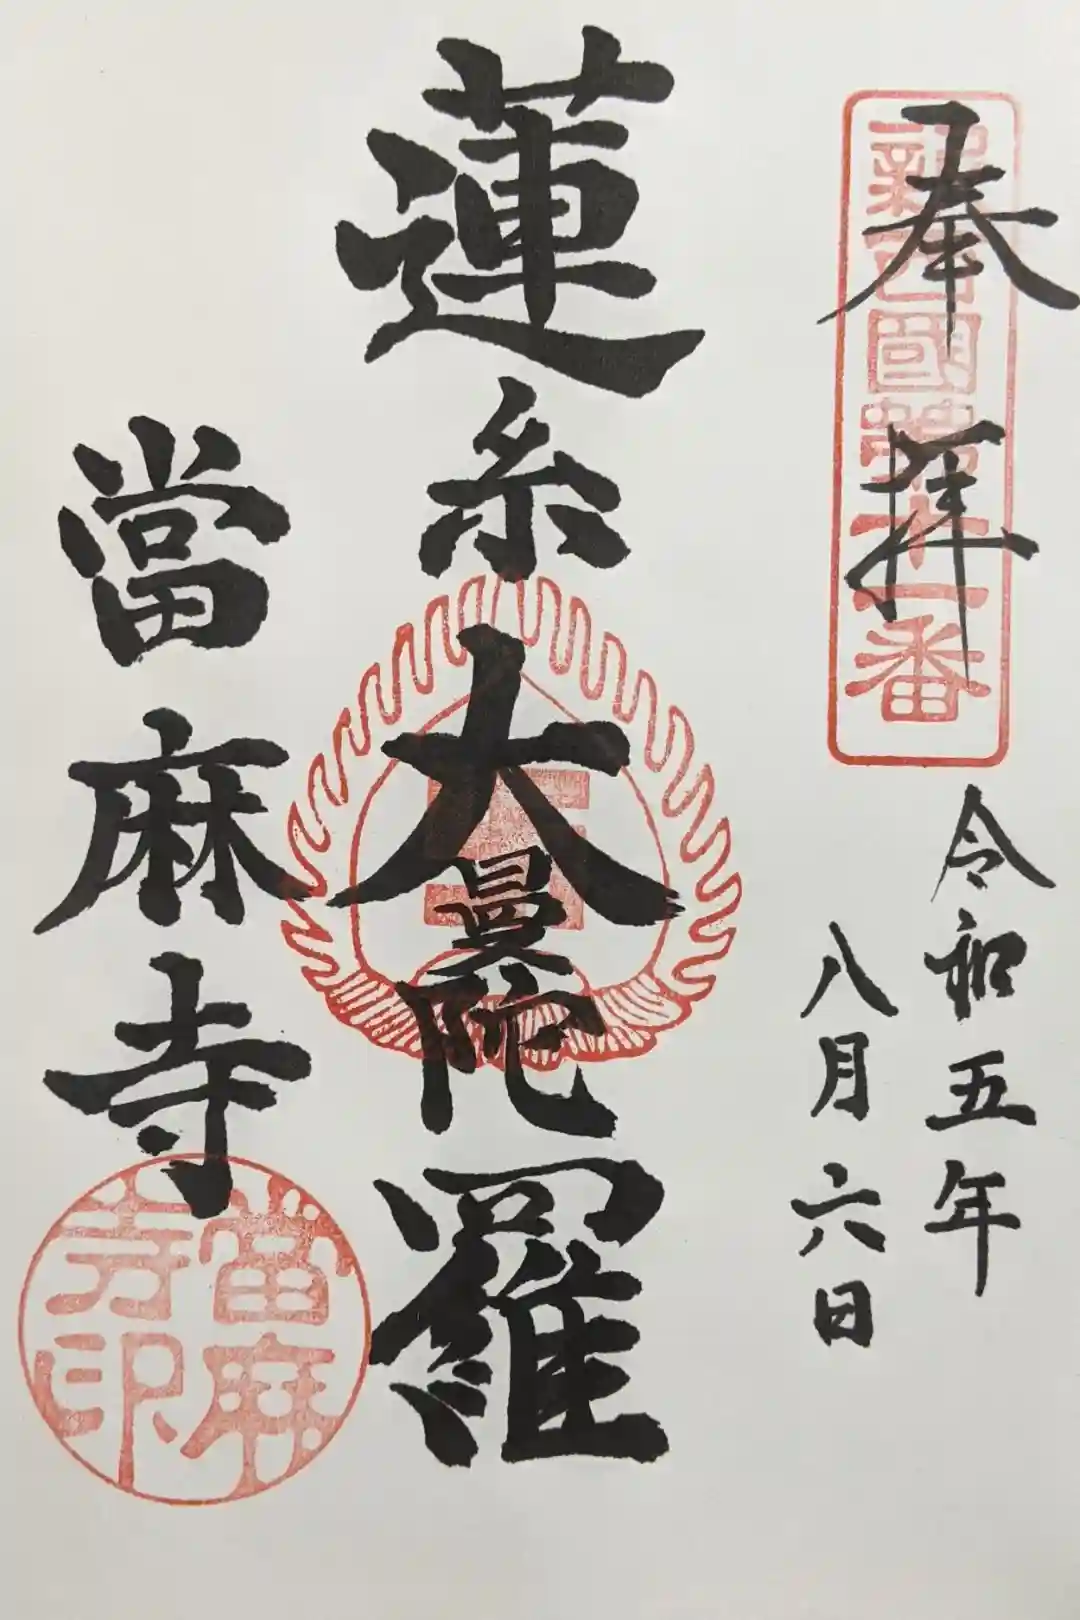 奉拝
新西國第十一番
令和五年
八月六日
蓮糸大曼陀羅
當麻寺
當麻寺印